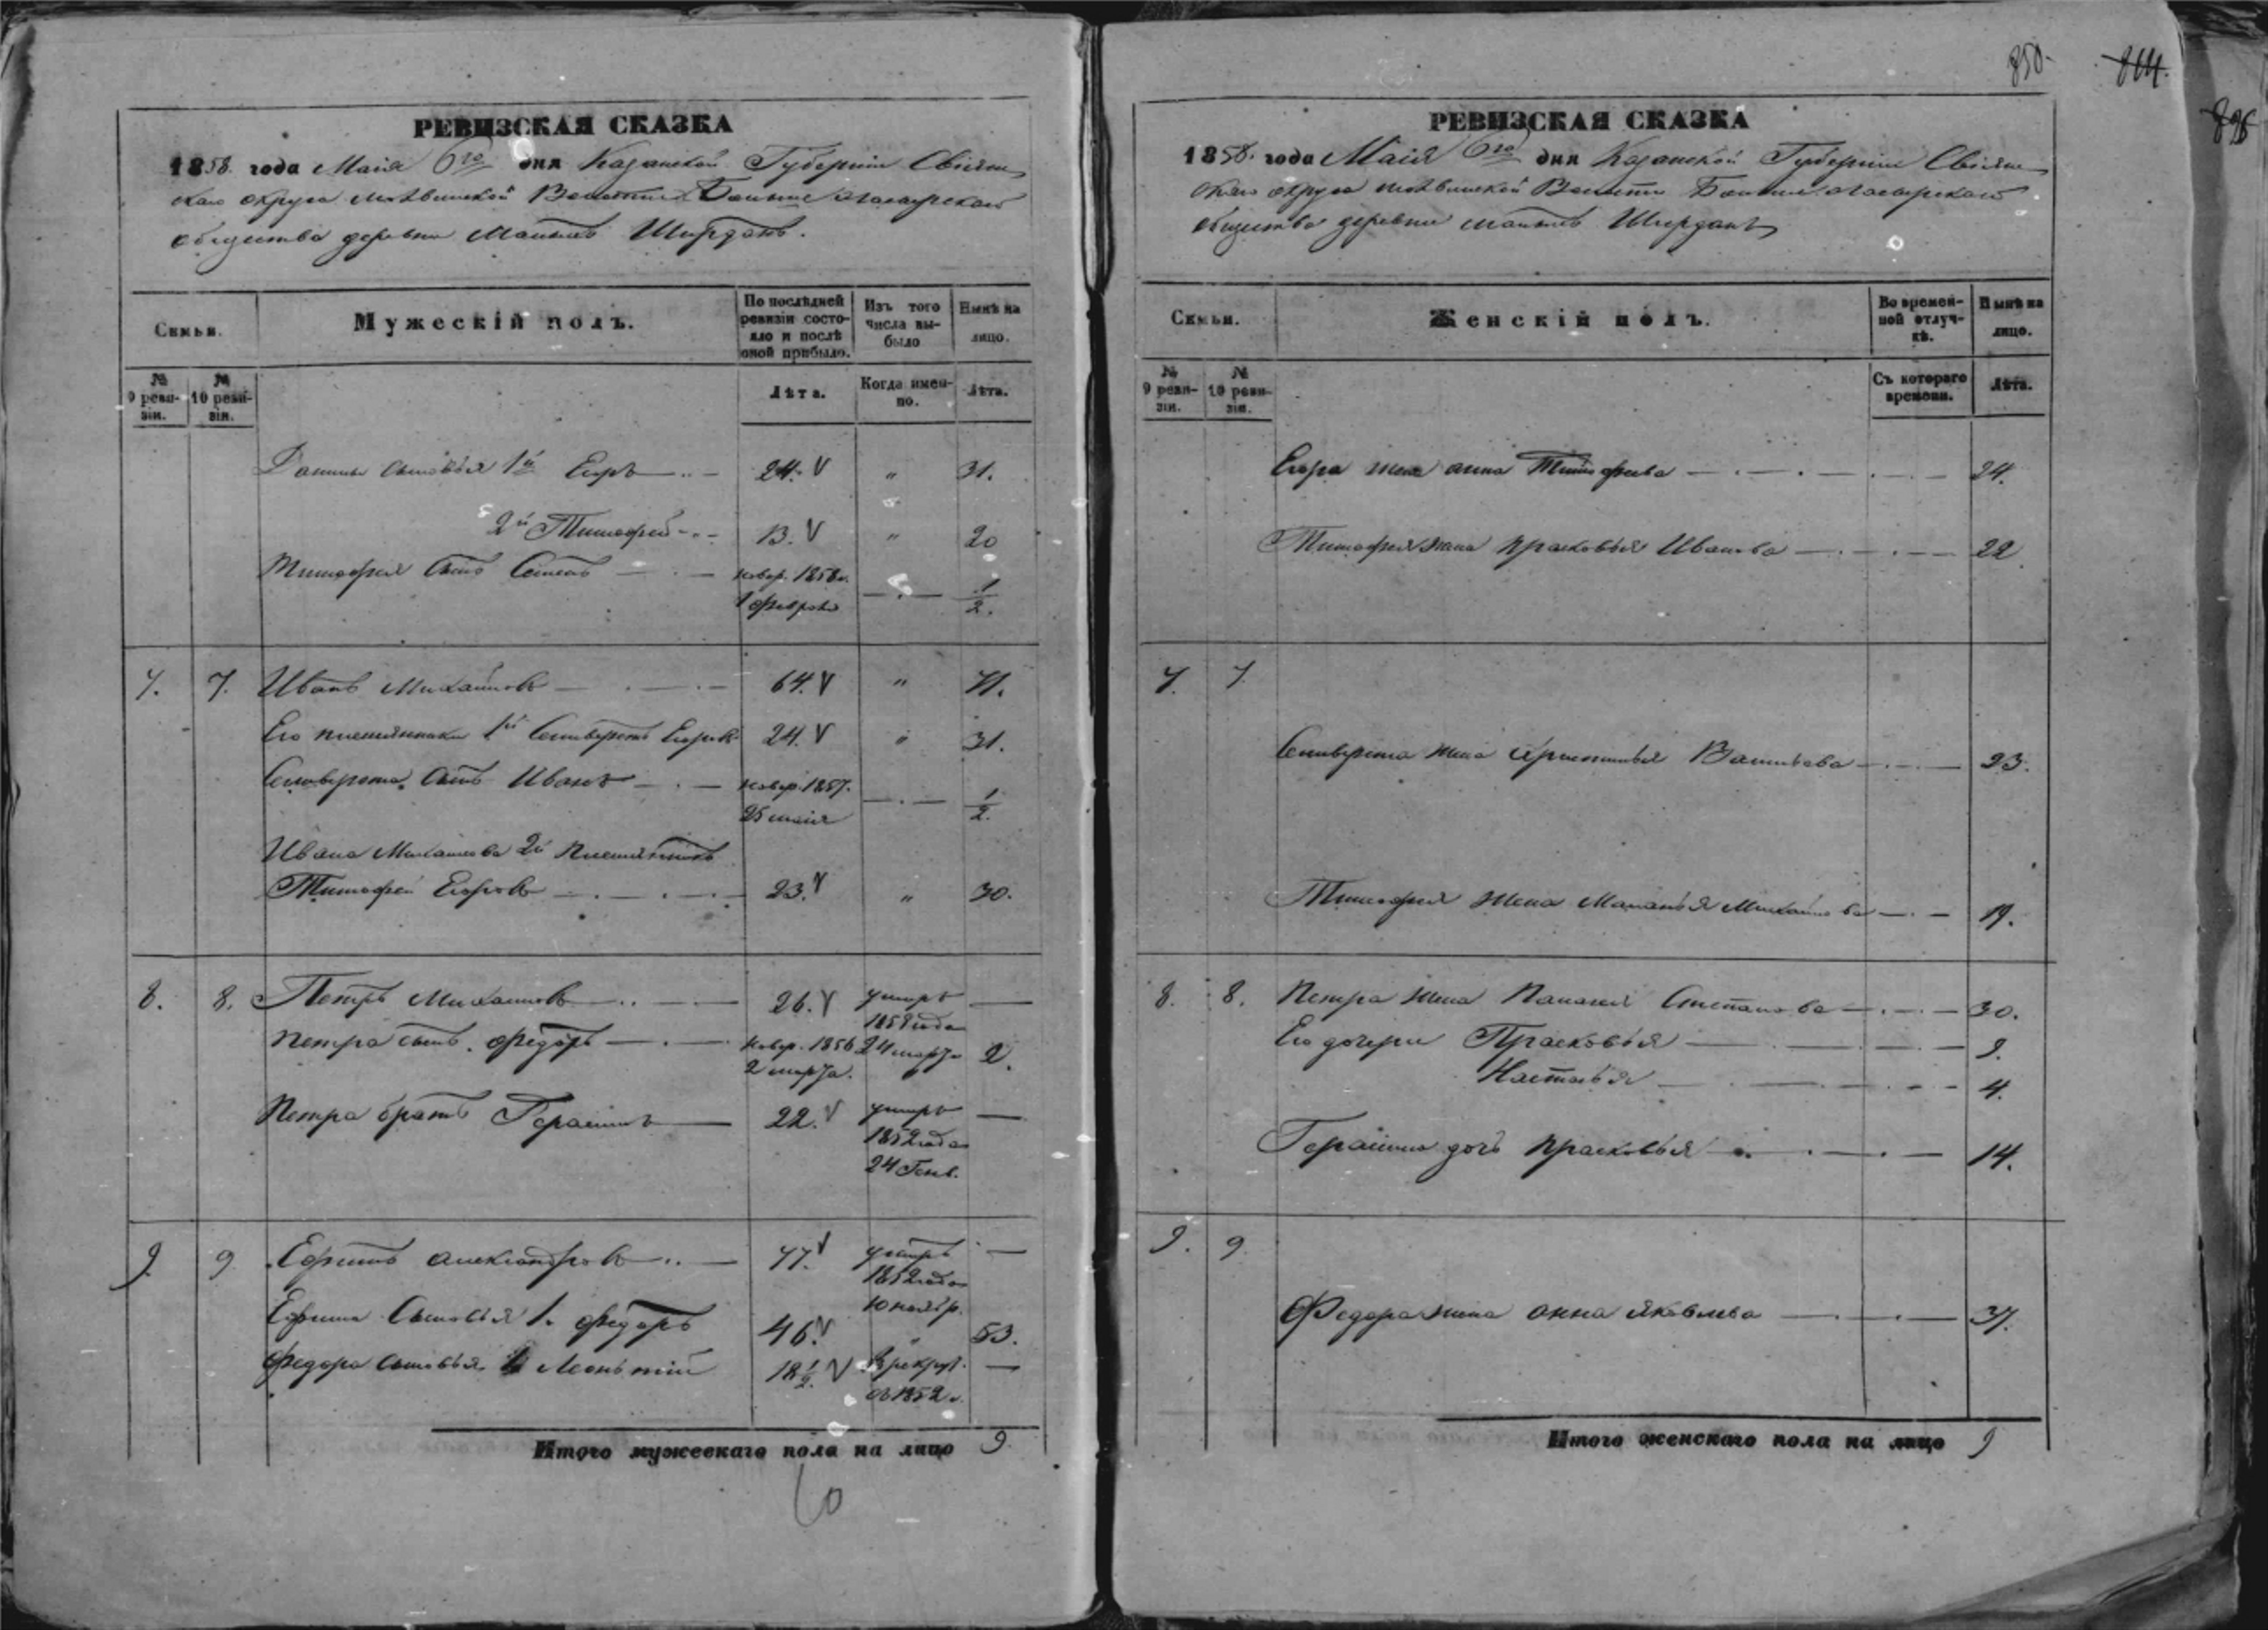 850.
814.
896
РЕВИЗСКАЯ СКАЗКА
1858. года Маія 6го дня Казанской Губерніи Свіяж
скаго округа Волости
общества деревни Малыхъ Ширданъ.
Семьи.
Мужескій полъ.
По послѣдней ревизіи состояло и послѣ оной прибыло.
Изъ того числа выбыло
Нынѣ на лицо.
№ 9 ревизіи.
№ 10 ревизіи.
Лѣта.
Когда именно.
Лѣта.
Данилы сыновья 1й Егоръ 24. V " 31.
2й Тимофей 13. V " 20
Тимофея сынъ Семенъ новор. 1858 г. 1 февраля 1/2.
7. 7. Иванъ Михайловъ 64. V " 71.
Его племянники 1й Селиверстъ Егоровъ 24. V " 31.
Селиверста сынъ Иванъ новор. 1857. 25 маія 1/2
Ивана Михайлова 2й племянникъ
Тимофей Егоровъ 23. V " 30.
8. 8. Петръ Михайловъ 26. V умеръ 1858 года 24 марта —
Петра сынъ Федоръ новор. 1856 2 марта. 2.
Петра братъ Герасимъ 22. V умеръ 1852 года 24 Генв. —
9 9 Ефимъ Александровъ 77. V умеръ 1852 года —
Ефима Сыновья 1. Федоръ 46. V " 53.
Федора сыновья 1 Леонтій 18 1/2. V В рекрут. въ 1852 г. —
Итого мужескаго пола на лицо 9
10
РЕВИЗСКАЯ СКАЗКА
1858. года Маія 6го дня Казанской Губерніи Свіяж
скаго округа Волости
общества деревни Малыхъ Ширданъ
Семьи.
Женскій полъ.
Во временной отлучкѣ.
Нынѣ на лицо.
№ 9 ревизіи.
№ 10 ревизіи.
Съ котораго времени.
Лѣта.
Егора жена Анна Тимофеева 24.
Тимофея жена Прасковья Иванова 22.
7. 7.
Селиверста жена Васильева 23.
Тимофея жена Маланья Михайлова 19.
8. 8. Петра жена Степанова 30.
Его дочери Прасковья 9.
Настасья 4.
Герасима дочь Прасковья 14.
9. 9.
Федора жена Анна Яковлева 37.
Итого женскаго пола на лицо 9